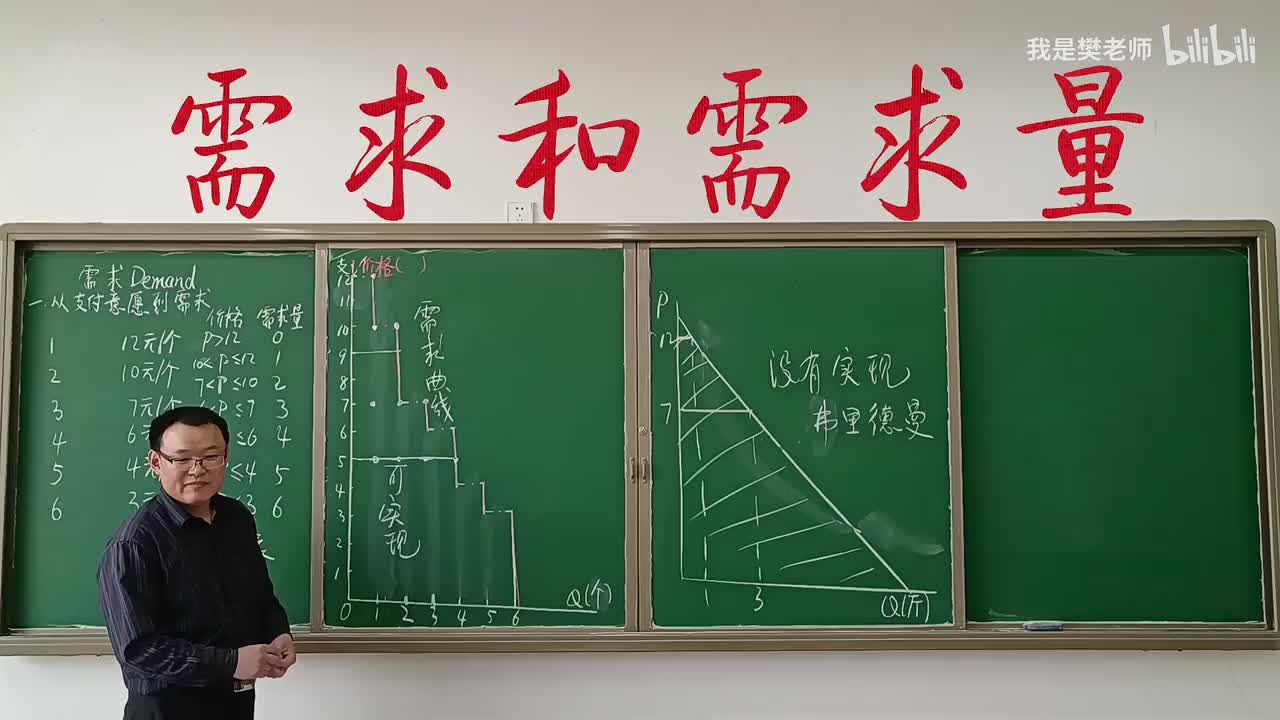 我是樊老师 bilibili
需求和需求量
需求 Demand
一.从支付意愿到需求
价格 需求量
1 12元/个 P>12 0
2 10元/个 10<P≤12 1
3 7元/个 7<P≤10 2
4 6 P≤7 3
5 4元 ≤6 4
6 3元 ≤4 5
≤3 6
价格( )
12
11
10
9
8
7
6
5
4
3
2
1
0 1 2 3 4 5 6
Q(个)
需求曲线
可实现
P
12
7
1 3
Q(斤)
没有实现
弗里德曼